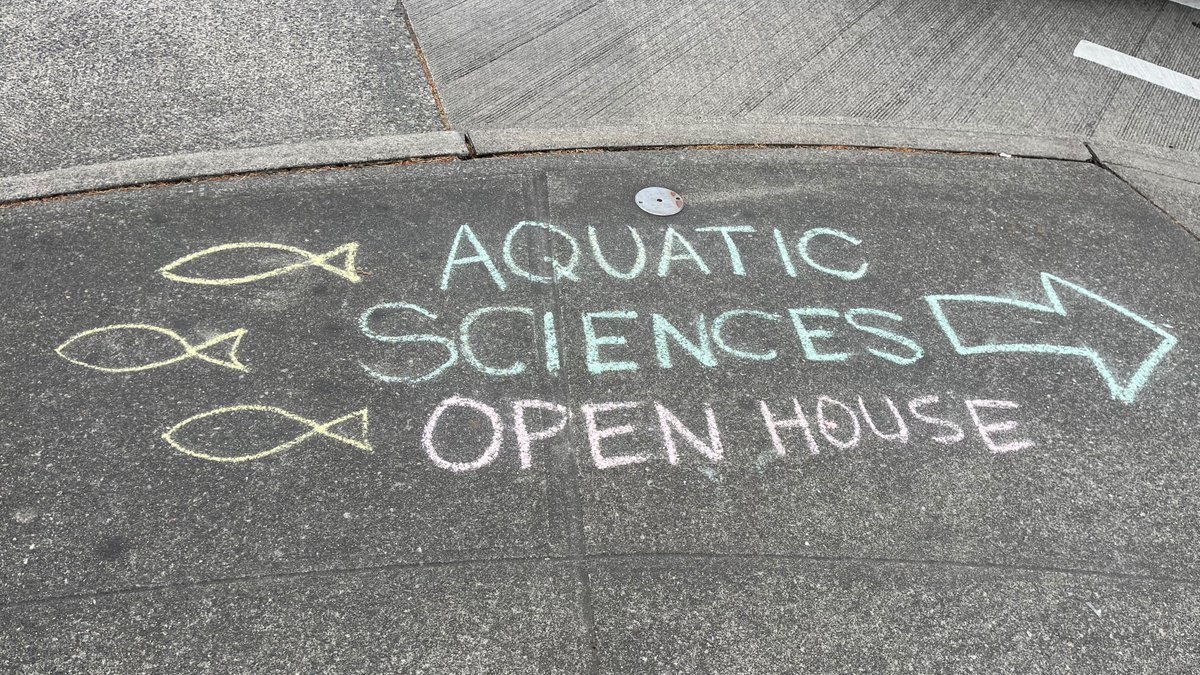 AQUATIC
SCIENCES
OPEN HOUSE